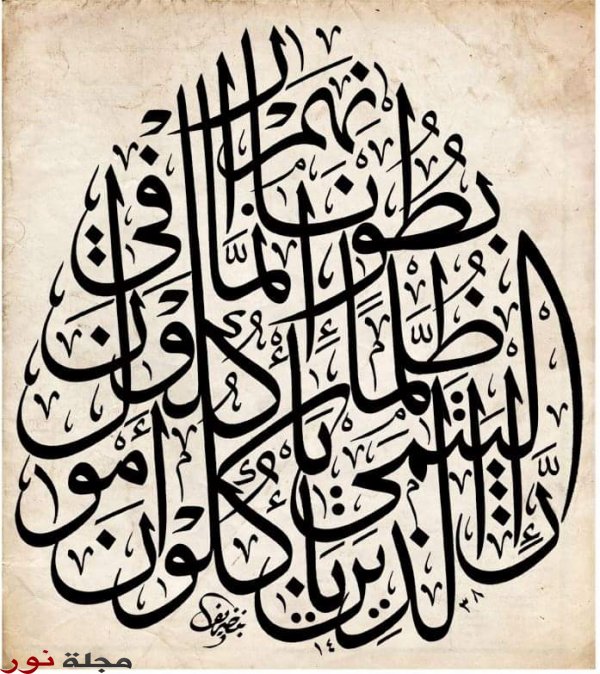 إِنَّ الَّذِينَ يَأْكُلُونَ أَمْوَالَ
الْيَتَٰمَىٰ ظُلْمًا إِنَّمَا يَأْكُلُونَ فِي
بُطُونِهِمْ نَارًا
١٤٣٨
مجلة نور